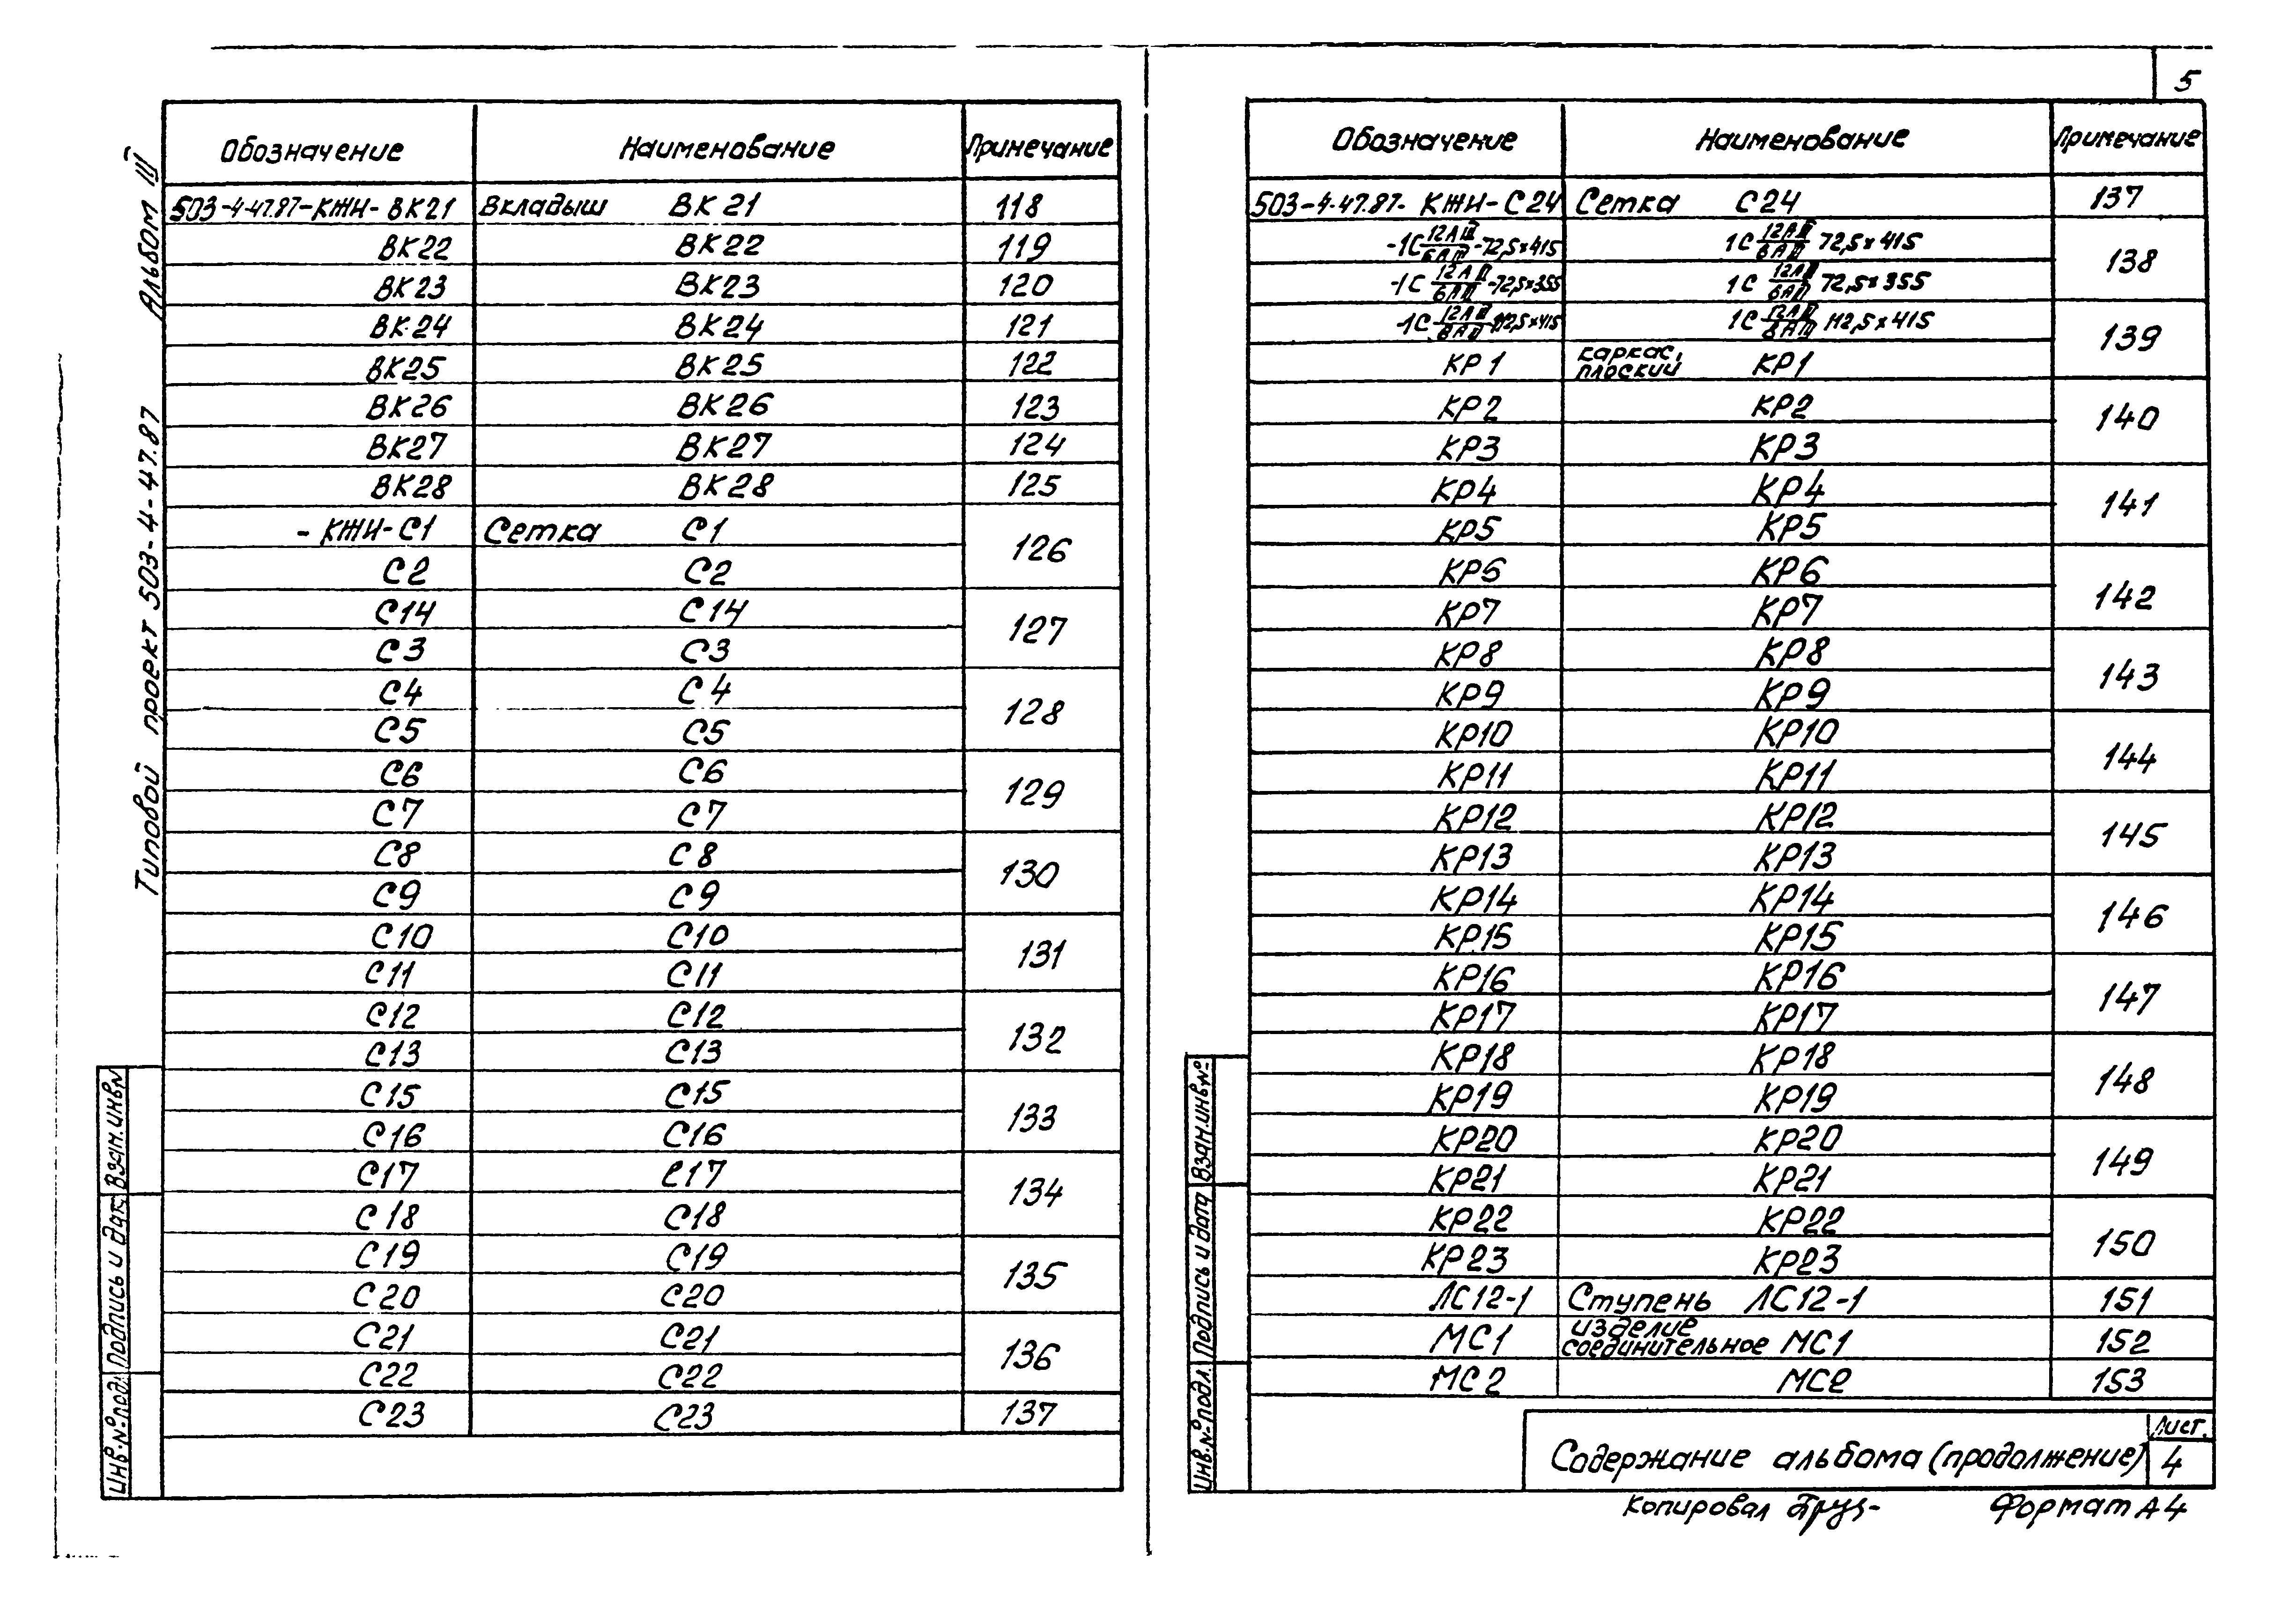 5
Типовой проект 503-4-47.87 Альбом III
Обозначение Наименование Примечание
503-4-47.87-КЖИ-ВК21 Вкладыш ВК21 118
ВК22 ВК22 119
ВК23 ВК23 120
ВК24 ВК24 121
ВК25 ВК25 122
ВК26 ВК26 123
ВК27 ВК27 124
ВК28 ВК28 125
-КЖИ-С1 Сетка С1 126
С2 С2
С14 С14 127
С3 С3
С4 С4 128
С5 С5
С6 С6 129
С7 С7
С8 С8 130
С9 С9
С10 С10 131
С11 С11
С12 С12 132
С13 С13
С15 С15 133
С16 С16
С17 С17 134
С18 С18
С19 С19 135
С20 С20
С21 С21 136
С22 С22
С23 С23 137
Инв.№подл Подпись и дата Взам.инв№
Обозначение Наименование Примечание
503-4-47.87-КЖИ-С24 Сетка С24 137
-1С 12АIII/6АIII -72,5×415 1С 12АIII/6АIII 72,5×415 138
-1С 12АIII/6АIII -72,5×355 1С 12АIII/6АIII 72,5×355
-1С 12АIII/8АIII 112,5×415 1С 12АIII/8АIII 112,5×415 139
КР1 каркас плоский КР1
КР2 КР2 140
КР3 КР3
КР4 КР4 141
КР5 КР5
КР6 КР6 142
КР7 КР7
КР8 КР8 143
КР9 КР9
КР10 КР10 144
КР11 КР11
КР12 КР12 145
КР13 КР13
КР14 КР14 146
КР15 КР15
КР16 КР16 147
КР17 КР17
КР18 КР18 148
КР19 КР19
КР20 КР20 149
КР21 КР21
КР22 КР22 150
КР23 КР23
ЛС12-1 Ступень ЛС12-1 151
МС1 изделие соединительное МС1 152
МС2 МС2 153
Инв.№подл Подпись и дата Взам.инв№
Содержание альбома (продолжение)
Лист.
4
Копировал
Формат А4